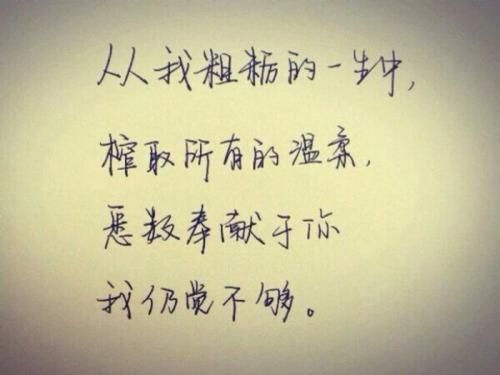 从我粗粝的一生中，
榨取所有的温柔，
悉数奉献于你
我仍觉不够。